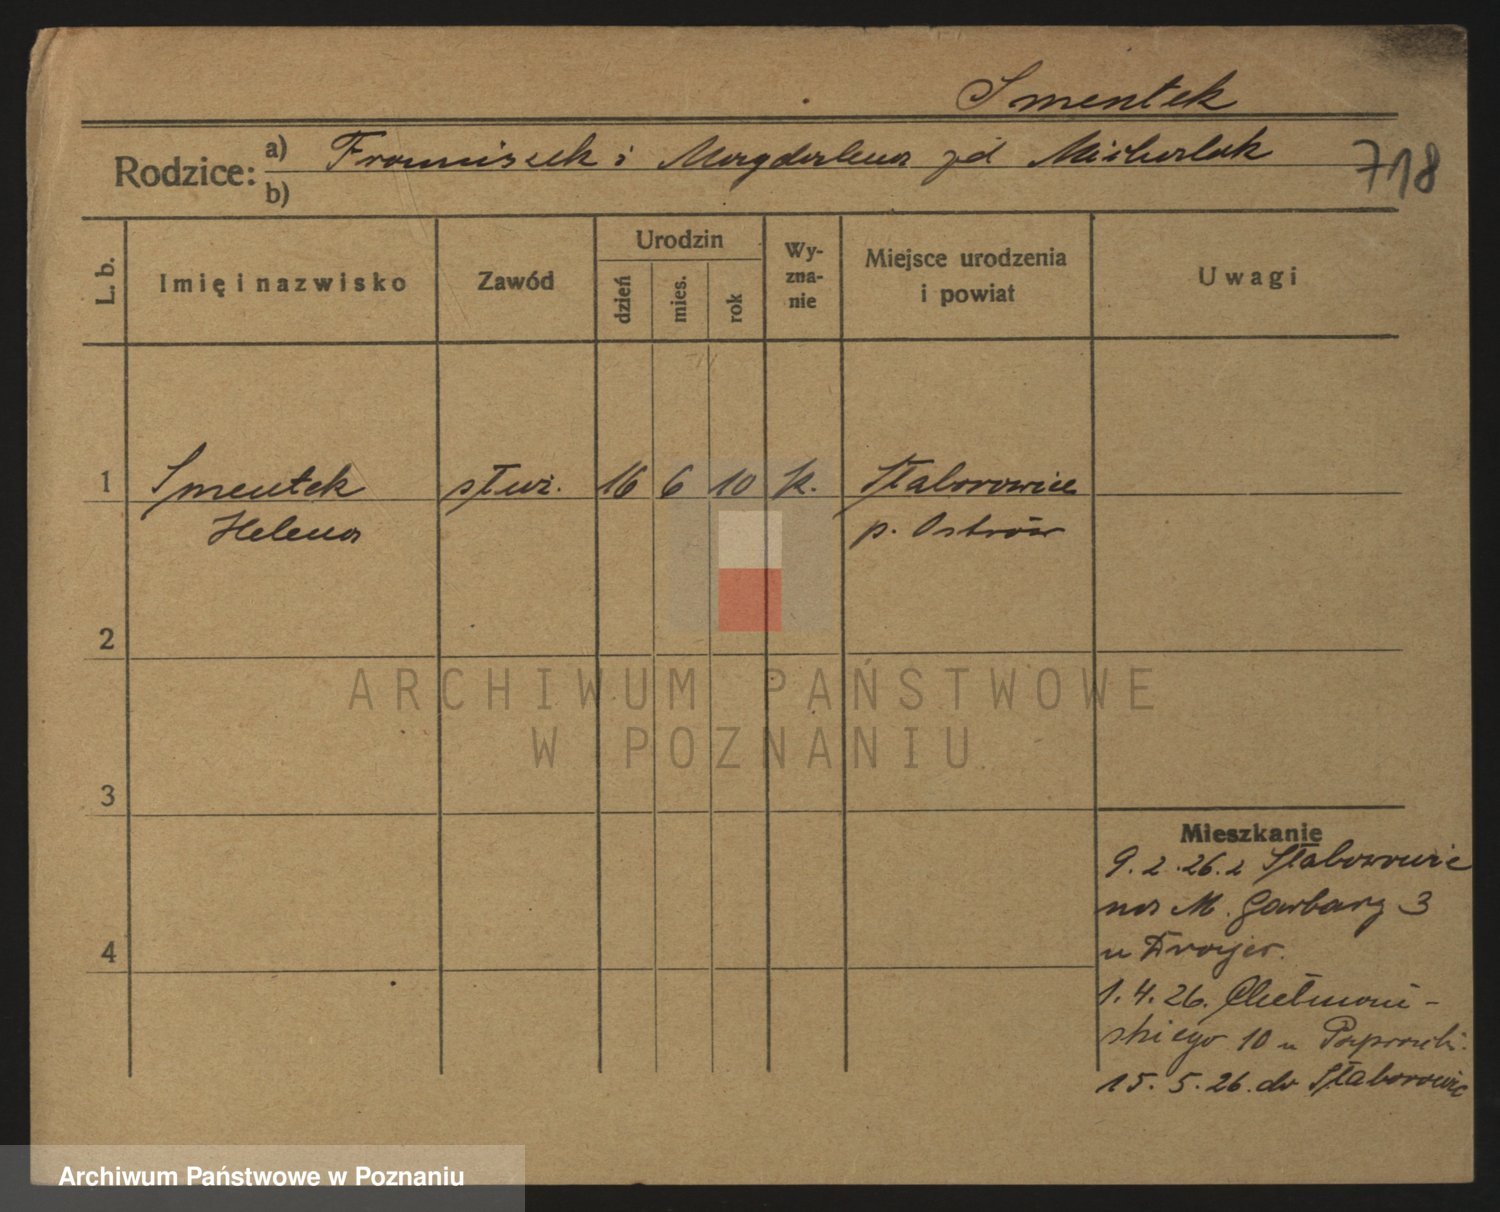 Smentek
Rodzice: a) Franciszek i Magdalena zd Michalak
b)
718
L. b. Imię i nazwisko Zawód Urodzin dzień mies. rok Wy-zna-nie Miejsce urodzenia i powiat Uwagi
1 Smentek służ. 16 6 10 k. Słaborowice
Helena p. Ostrów
2
3
4
Mieszkanie
9.2.26. z Słaborowic
na M. Garbary 3
u
1.4.26. Chełmoń-
skiego 10 u
15.5.26. do Słaborowic
ARCHIWUM PAŃSTWOWE
W POZNANIU
Archiwum Państwowe w Poznaniu